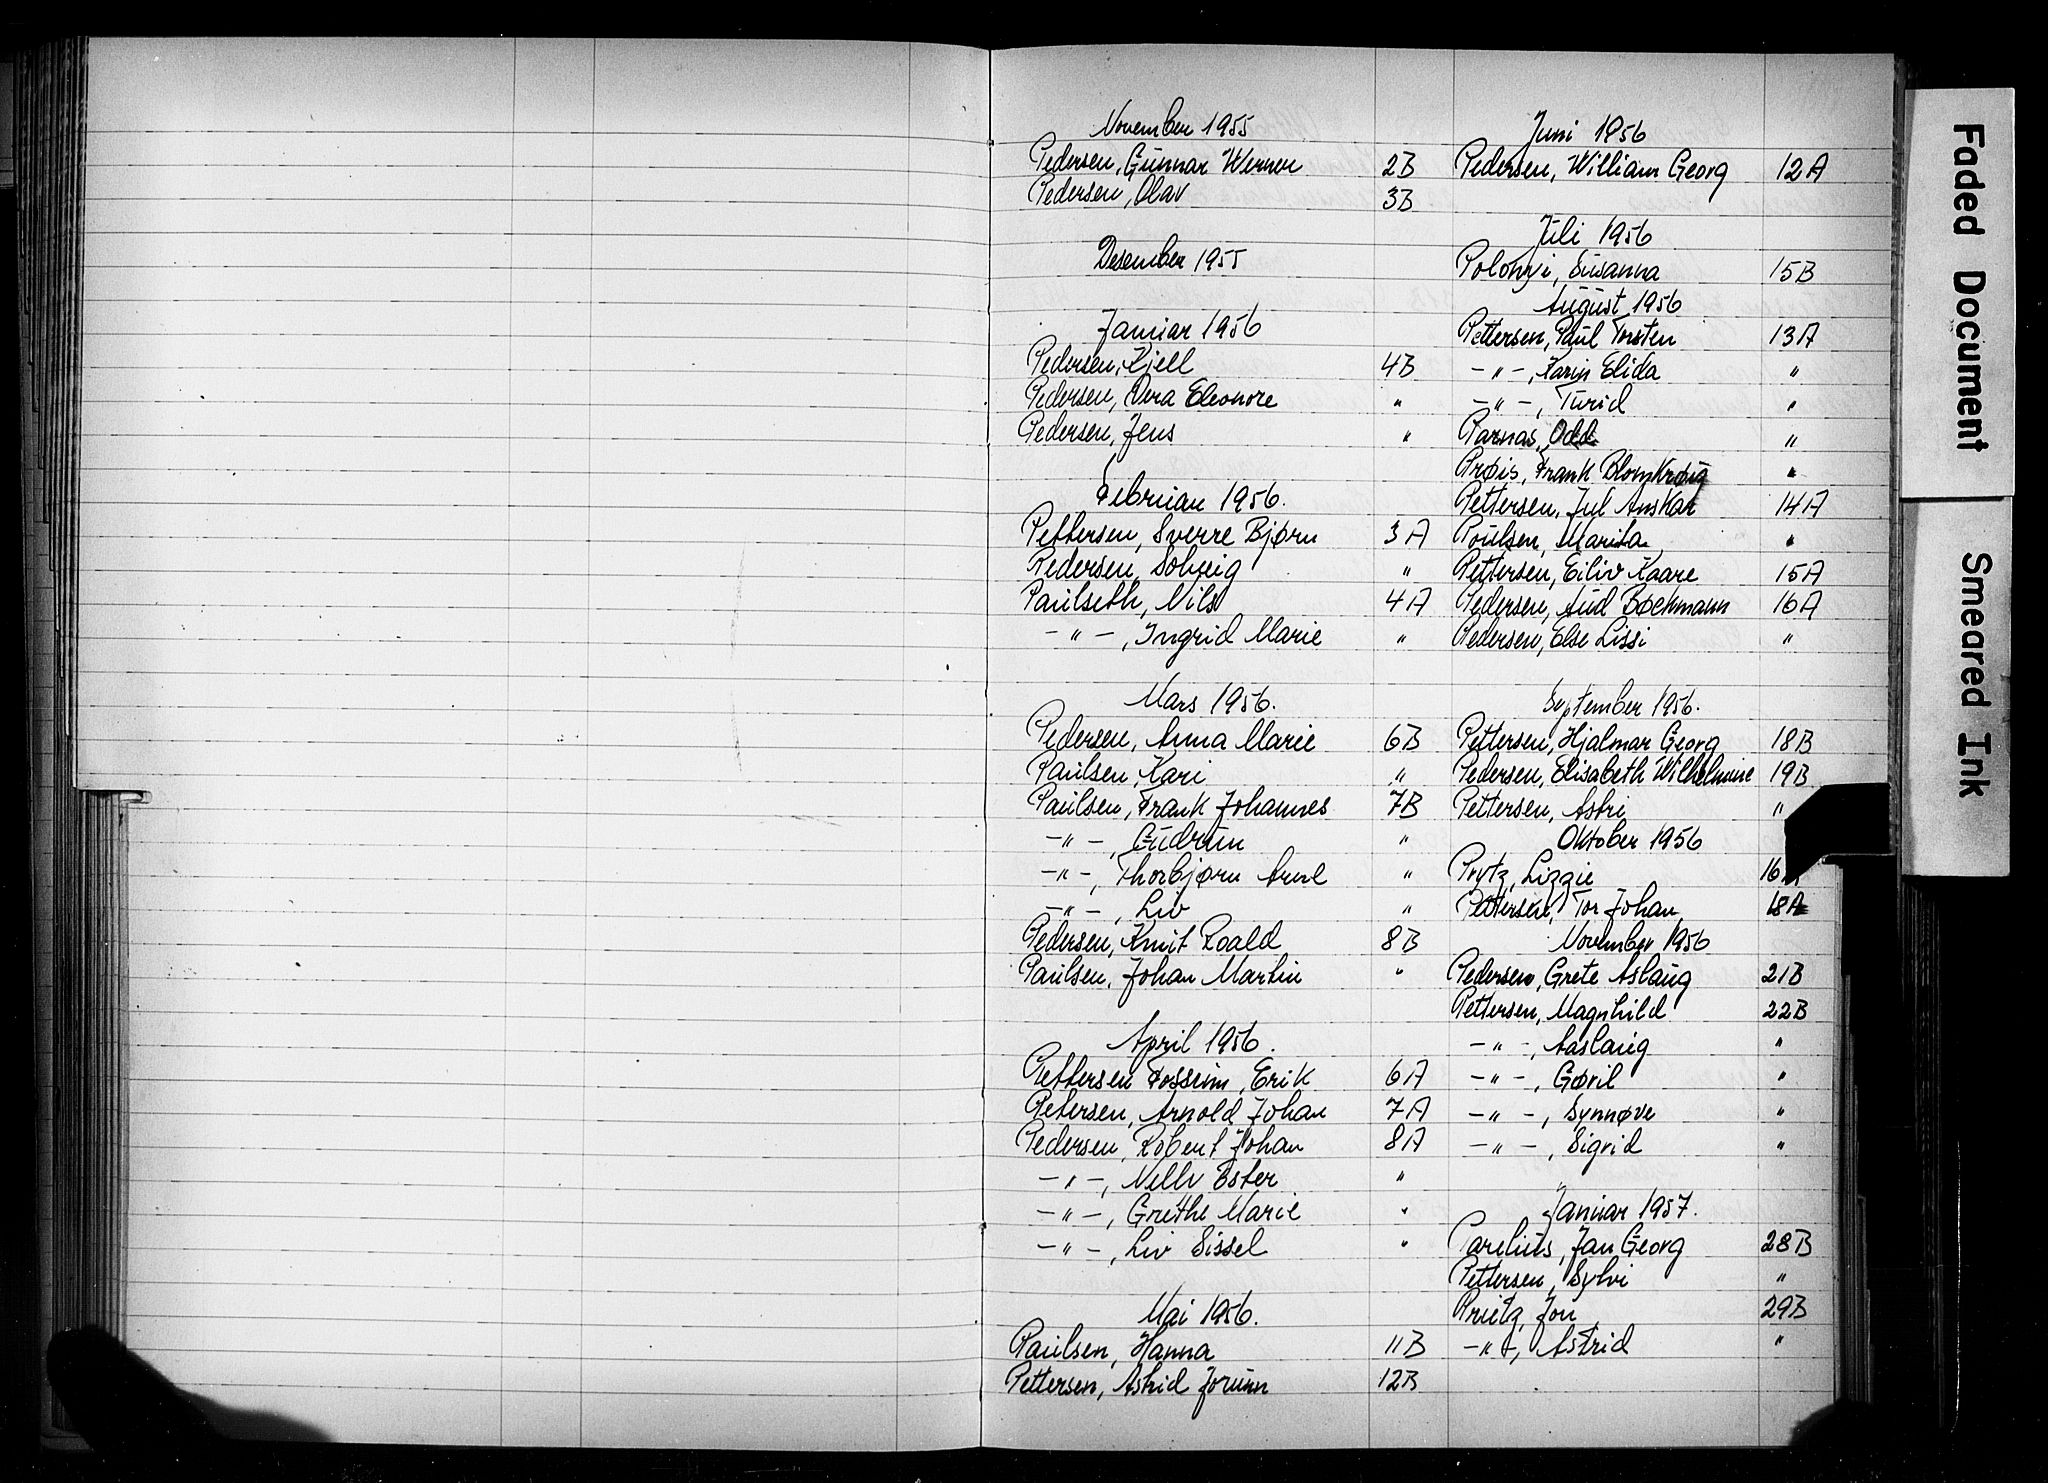 November 1955
Pedersen, Gunnar Werner 2B
Pedersen, Olav 3B
Desember 1955
Januar 1956
Pedersen, Kjell 4B
Pedersen, Vera Eleonore "
Pedersen, Jens "
Februar 1956.
Pettersen, Sverre Bjørn 3A
Pedersen, Solveig "
Paulseth, Nils 4A
- " -, Ingrid Marie "
Mars 1956.
Pedersen, Anna Marie 6B
Paulsen, Kari "
Paulsen, Frank Johannes 7B
- " -, Gudrun "
- " -, Thorbjørn "
- " -, Liv "
Pedersen, Knut Roald 8B
Paulsen, Johan Martin "
April 1956.
Pettersen Fossum, Erik 6A
Petersen, Arnold Johan 7A
Pedersen, Robert Johan 8A
- " -, Nelly Ester "
- " -, Grethe Marie "
- " -, Liv Sissel "
Mai 1956.
Paulsen, Hanna 11B
Pettersen, Astrid Jorunn 12B
Juni 1956
Pedersen, William Georg 12A
Juli 1956
Polonyi, Susanna 15B
August 1956
Pettersen, Paul Torsten 13A
- " -, Karin Elida "
- " -, Turid "
Parnas, Odd "
Prøis, Frank "
Pettersen, Jul Anskar 14A
Poulsen, Marita "
Pettersen, Eiliv Kaare 15A
Pedersen, Aud Bøckmann 16A
Pedersen, Else Lissi "
September 1956.
Pettersen, Hjalmar Georg 18B
Pedersen, Elisabeth Wilhelmine 19B
Pettersen, Astri "
Oktober 1956
Prytz, Lizzie 16A
Pettersen, Tor Johan 18A
November 1956
Pedersen, Grete Aslaug 21B
Pettersen, Magnhild 22B
- " -, Aaslaug "
- " -, Gøril "
- " -, Synnøve "
- " -, Sigrid "
Januar 1957.
Parelius, Jan Georg 28B
Pettersen, Sylvi "
Prietz, Jon 29B
- " -, Astrid "
Faded Document
Smeared Ink